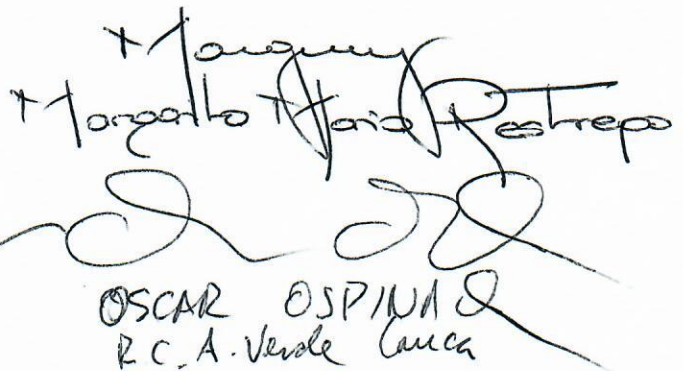 Margarita Maria Restrepo
OSCAR OSPINA
R.C. A. Verde Cauca